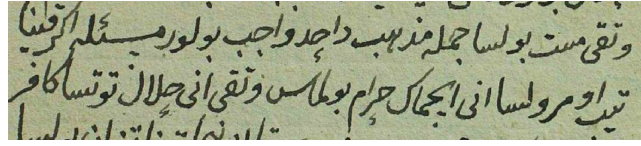 وتقى مست بولسا جمله مذهب داحد واجب بولور مسئله اكر قينايا
تيب اومرولسا انى ايجماك حرام بولماس وتقى انى حلال توتسا كافر